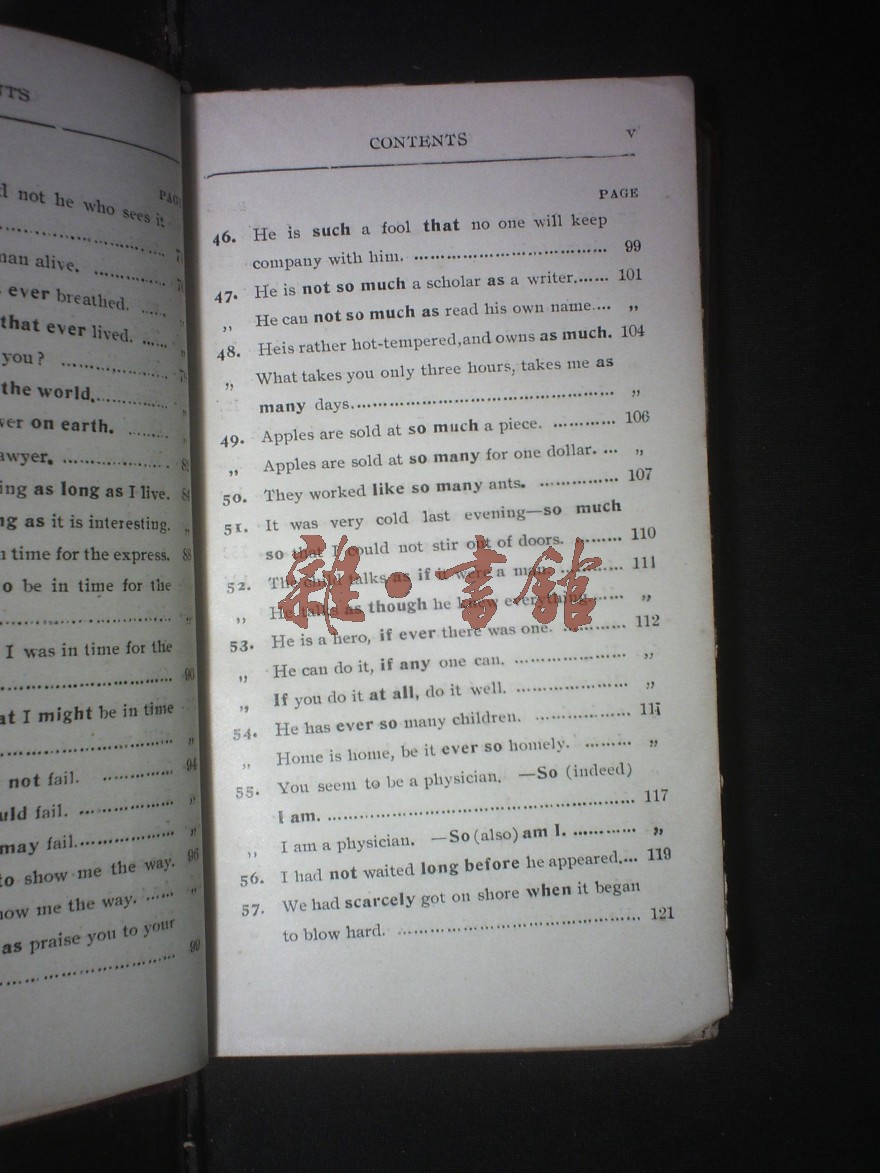 NTS
PAG
not he who sees it
man alive.
ever breathed.
that ever lived.
you?
the world.
ver on earth.
awyer.
ing as long as I live.
ng as it is interesting.
n time for the express. 88
o be in time for the
I was in time for the
90
at I might be in time
"
not fail. 94
uld fail. "
may fail. "
to show me the way. 96
how me the way. "
as praise you to your
99
CONTENTS v
PAGE
46. He is such a fool that no one will keep
company with him. 99
47. He is not so much a scholar as a writer. 101
„ He can not so much as read his own name. „
48. Heis rather hot-tempered,and owns as much. 104
„ What takes you only three hours, takes me as
many days. „
49. Apples are sold at so much a piece. 106
„ Apples are sold at so many for one dollar. „
50. They worked like so many ants. 107
51. It was very cold last evening—so much
so that I could not stir out of doors. 110
52. The child talks as if it were a man. 111
„ He talks as though he knew everything. „
53. He is a hero, if ever there was one. 112
„ He can do it, if any one can. „
„ If you do it at all, do it well. „
54. He has ever so many children.
„ Home is home, be it ever so homely. „
55. You seem to be a physician. —So (indeed)
I am. 117
„ I am a physician. —So (also) am I. „
56. I had not waited long before he appeared. 119
57. We had scarcely got on shore when it began
to blow hard. 121
雜·書館